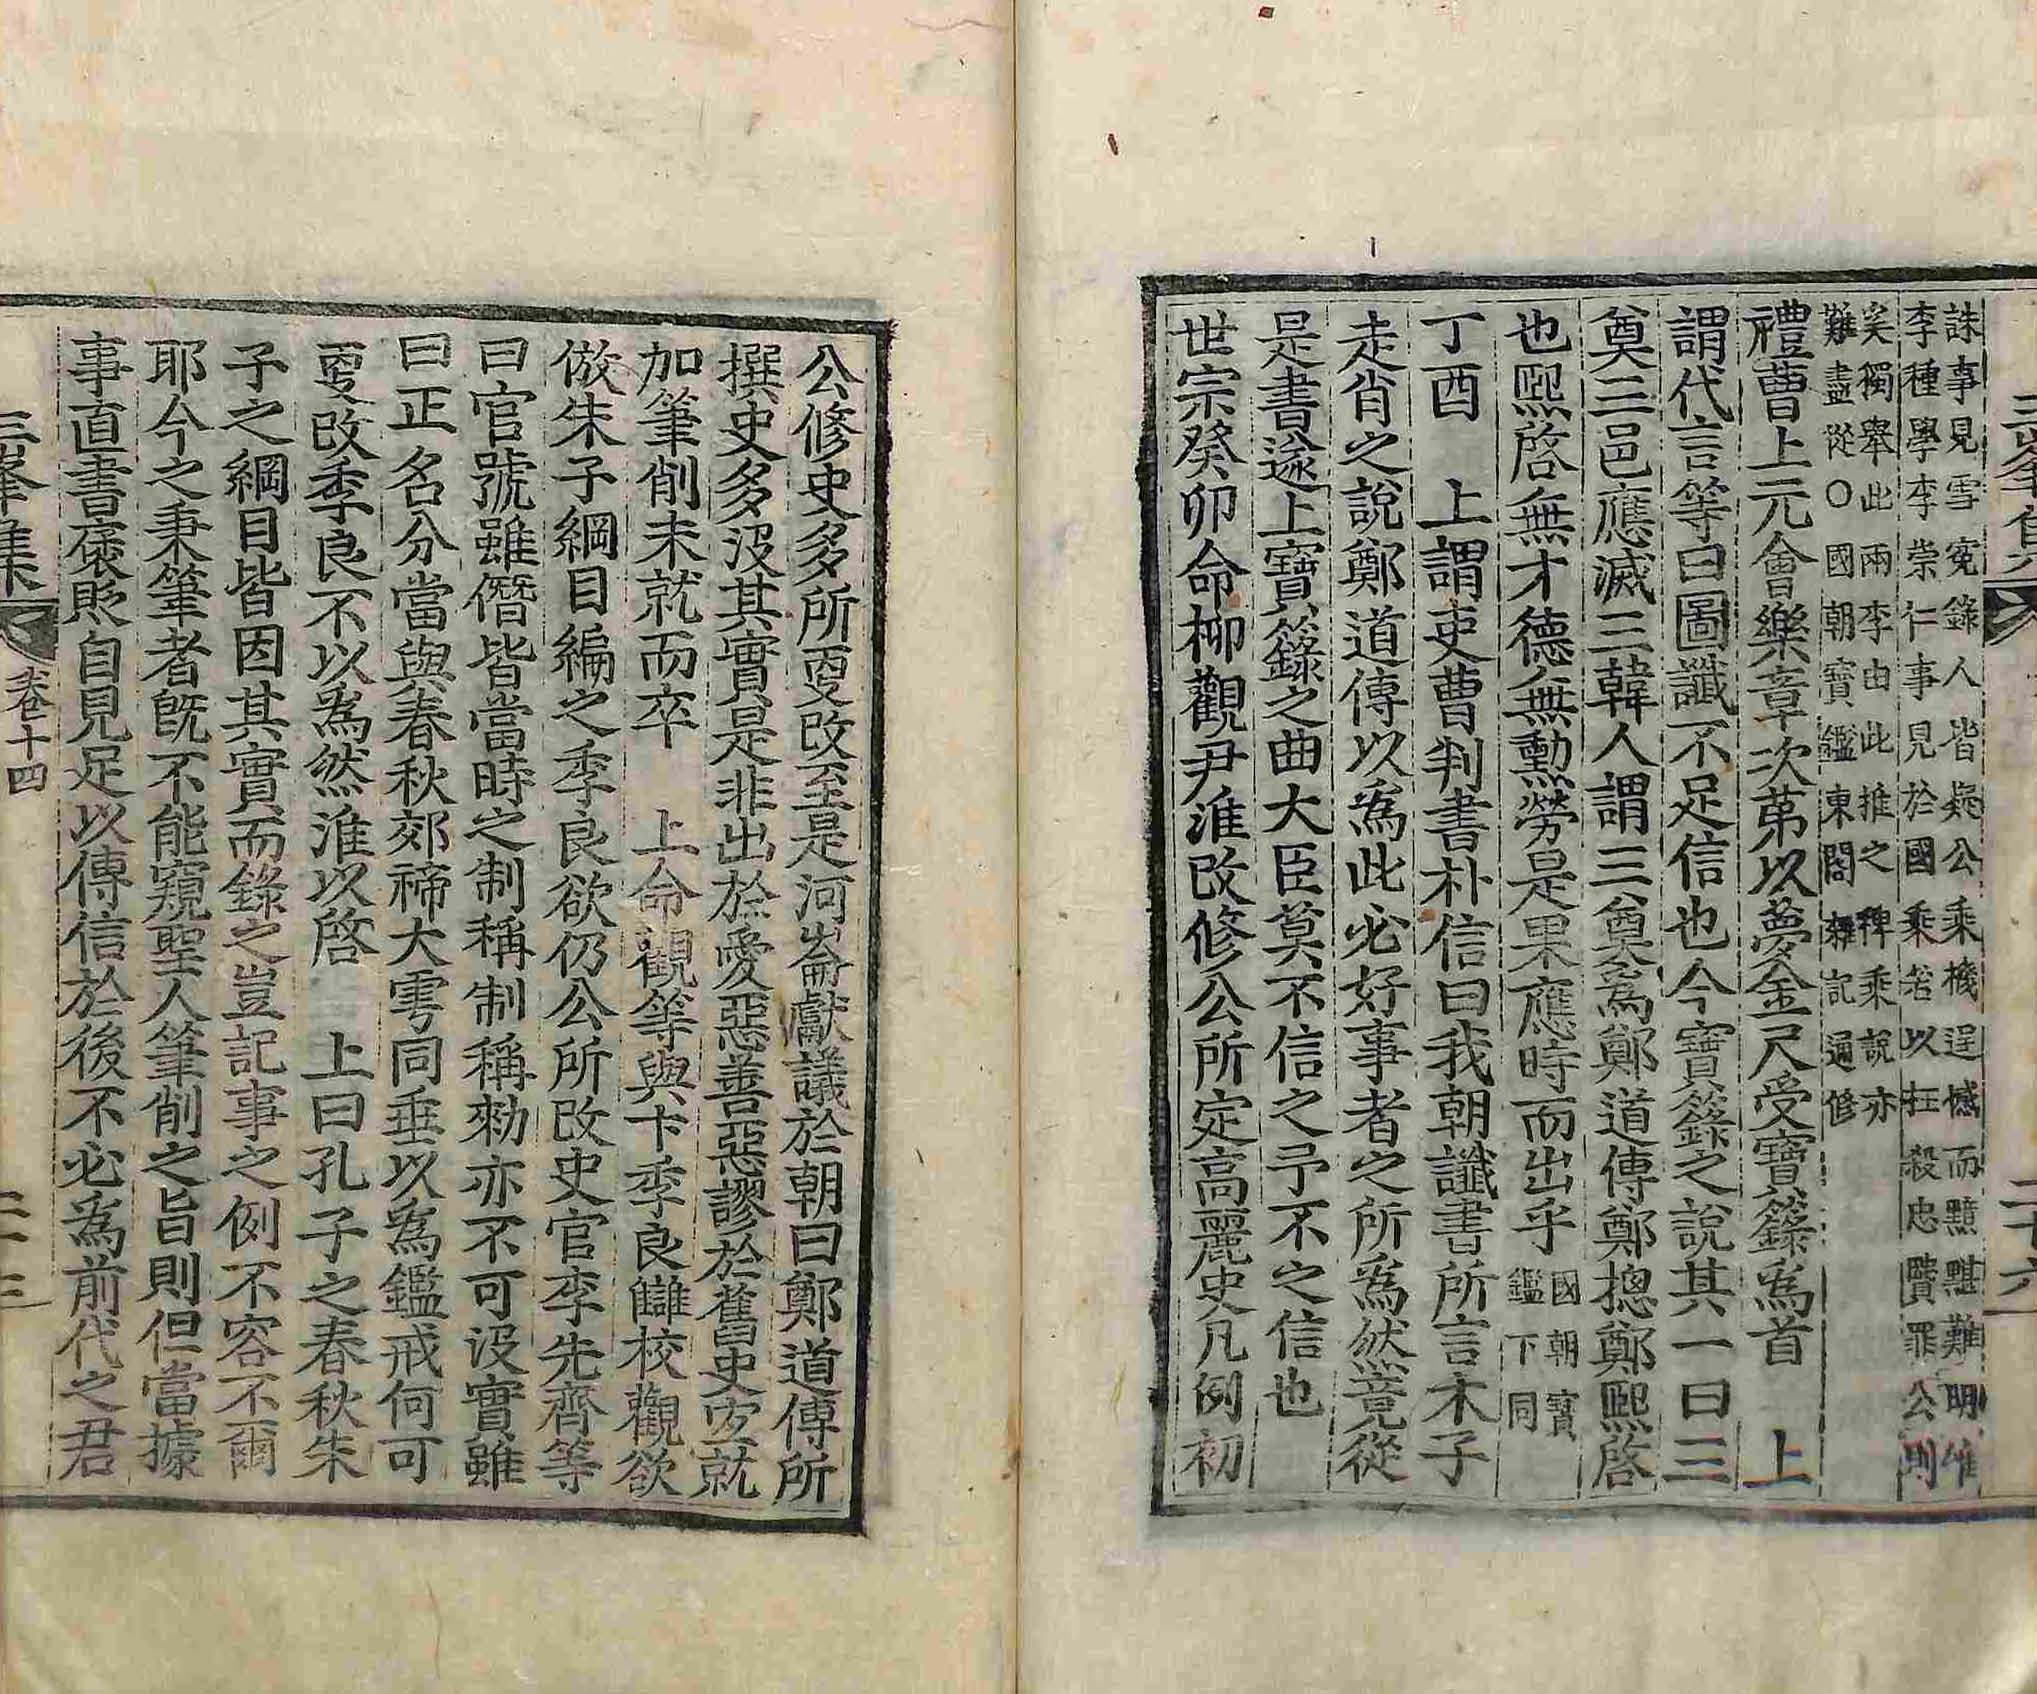 三峯集
二十六
誅事見雪寃錄人皆疑公乘機逞憾而黯黮難明唯
李種學李崇仁事見於國乘若以枉殺忠賢罪公則
奚獨舉此兩李由此推之稗乘說亦
難盡從○國朝寶鑑東閣雜記遍修
禮曹上元會樂章次第以夢金尺受寶籙爲首 上
謂代言等曰圖讖不足信也今寶籙之說其一曰三
奠三邑應滅三韓人謂三奠爲鄭道傳鄭摠鄭熙啓
也熙啓無才德無勳勞是果應時而出乎國朝寶鑑下同
丁酉 上謂吏曹判書朴信曰我朝讖書所言木子
走肖之說鄭道傳以爲此必好事者之所爲然竟從
是書遂上寶籙之曲大臣莫不信之予不之信也
世宗癸卯命柳觀尹淮改修公所定高麗史凡例初
公修史多所更改至是河崙獻議於朝曰鄭道傳所
撰史多沒其實是非出於愛惡善惡謬於舊史宜就
加筆削未就而卒 上命觀等與卞季良讎校觀欲
倣朱子綱目編之季良欲仍公所改史官李先齊等
曰官號雖僭皆當時之制稱制稱勑亦不可沒實雖
曰正名分當與春秋郊禘大雩同垂以爲鑑戒何可
更改季良不以爲然淮以啓 上曰孔子之春秋朱
子之綱目皆因其實而錄之豈記事之例不容不爾
耶今之秉筆者旣不能窺聖人筆削之旨則但當據
事直書褒貶自見足以傳信於後不必爲前代之君
三峯集
卷十四